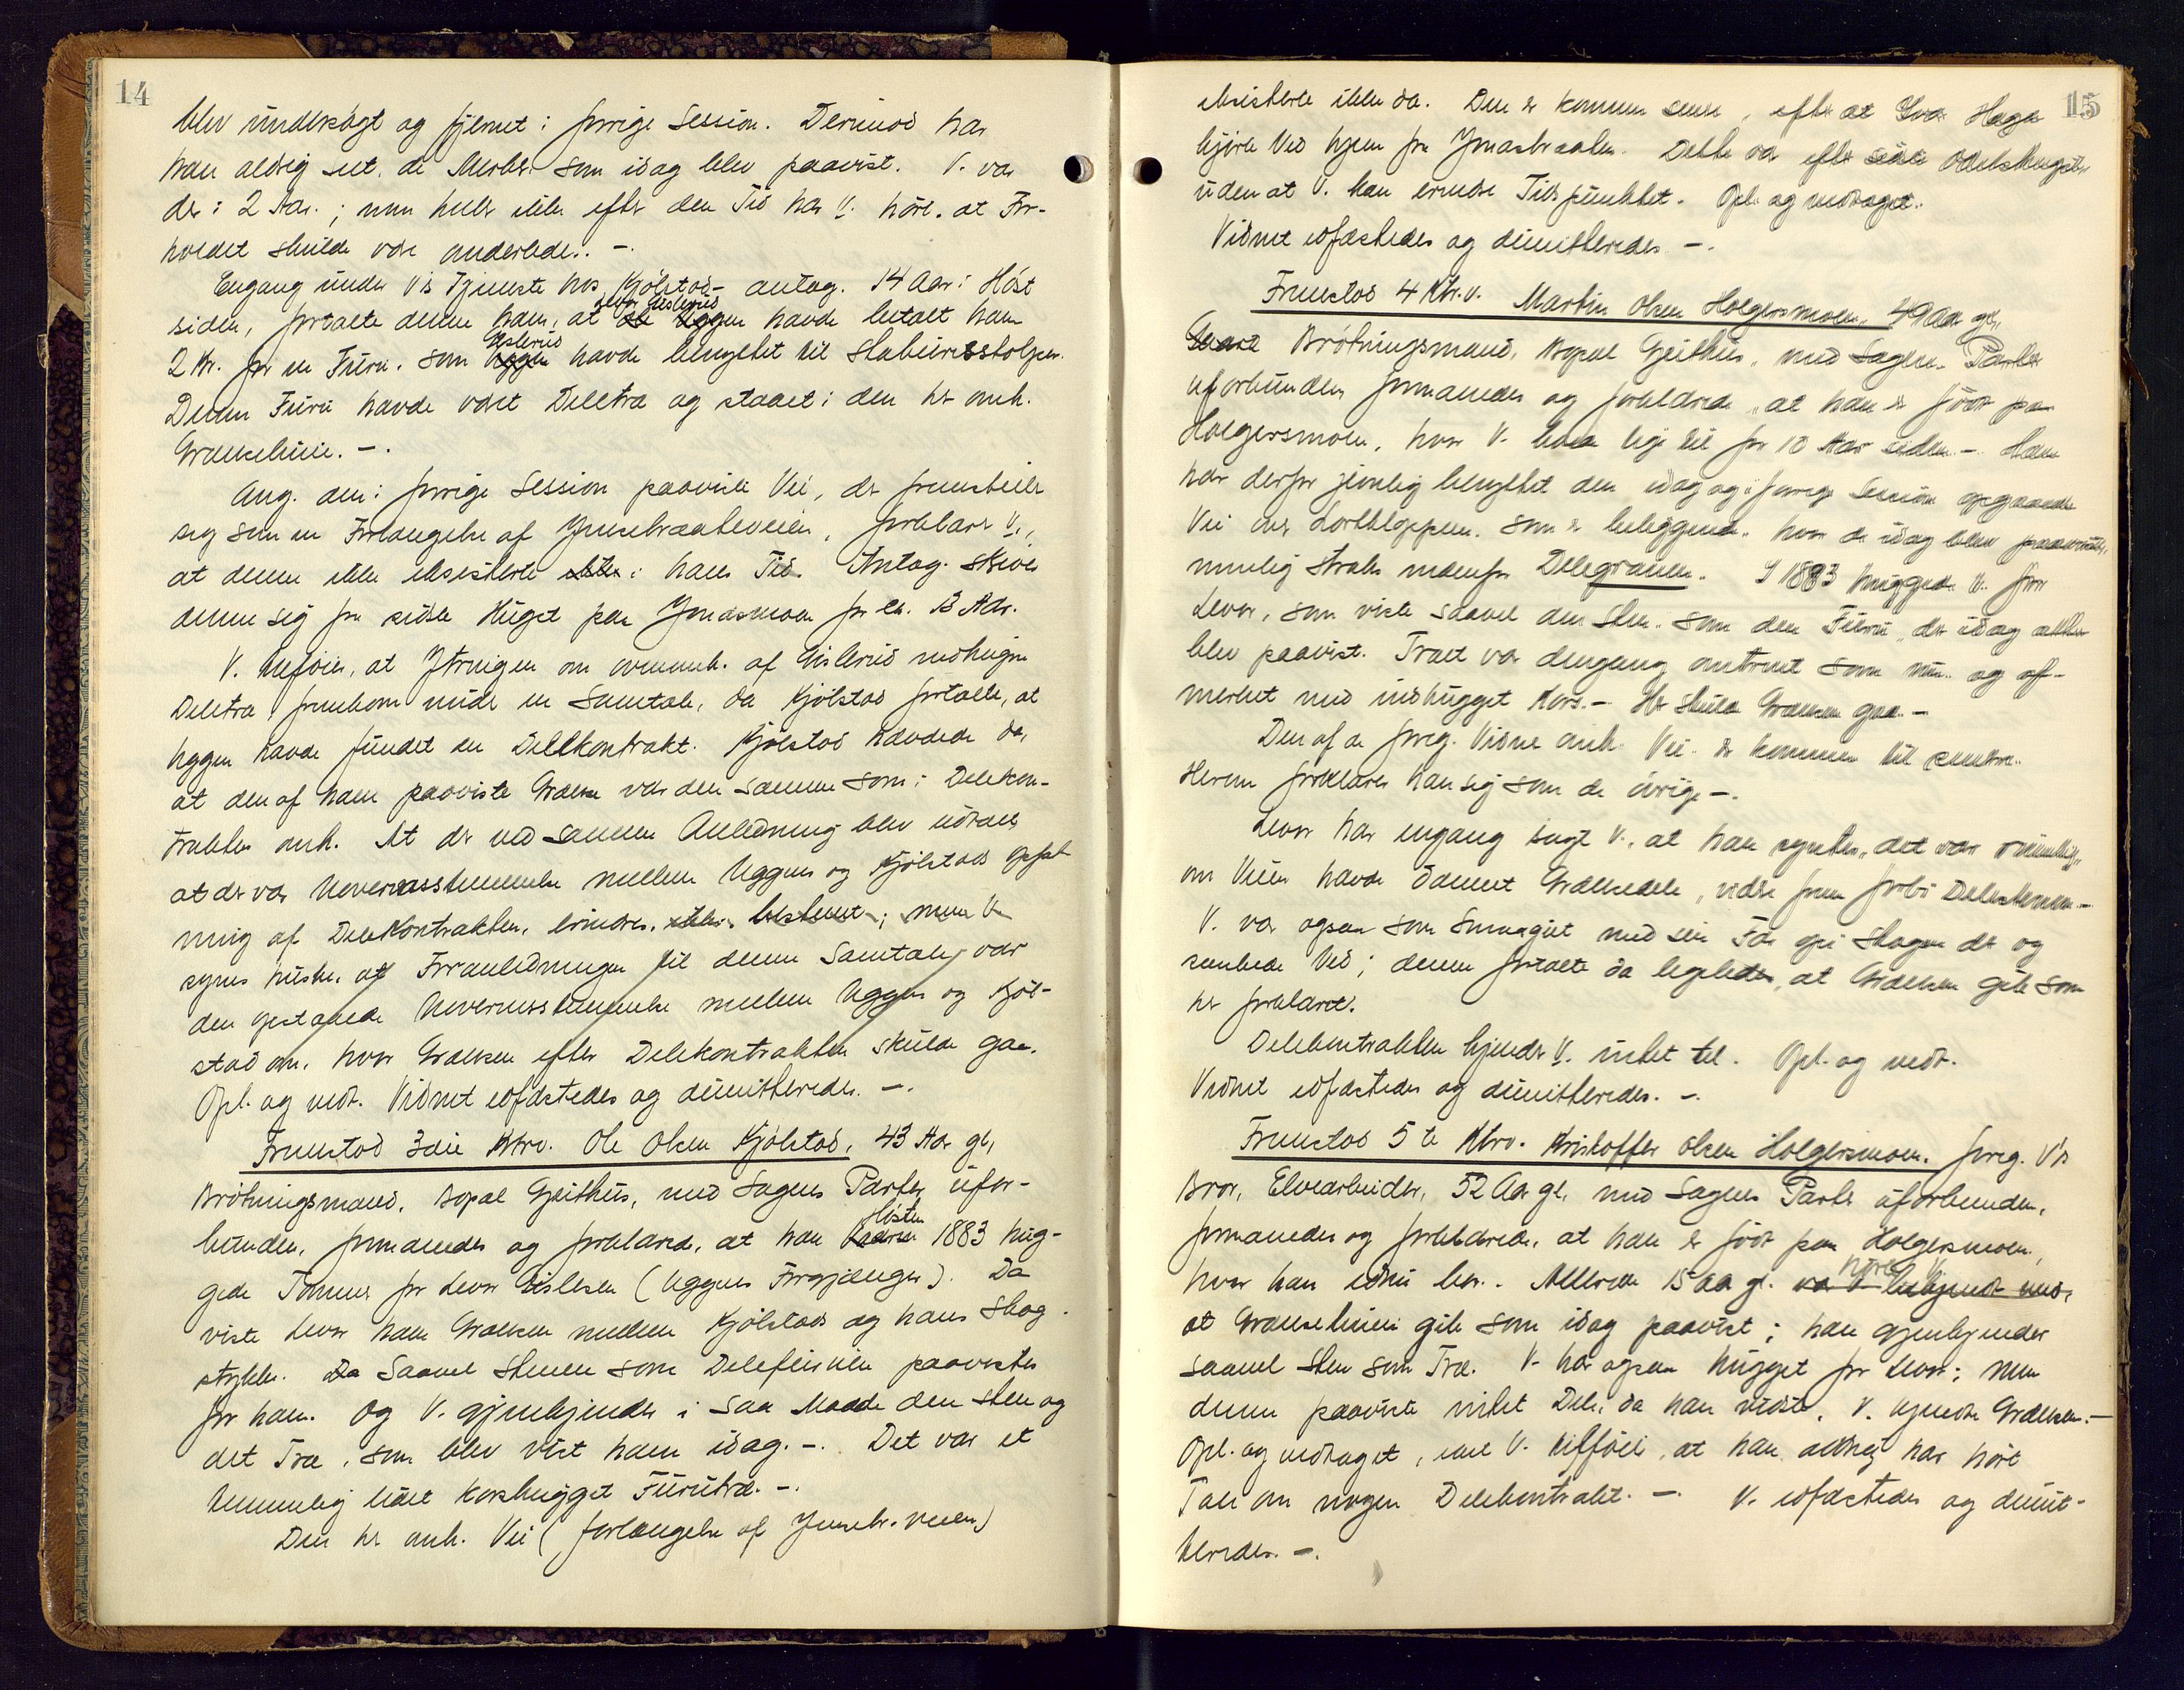 14
blev undersögt og fjernet i forrige Session. Derimod har
han aldrig set de Merker som idag blev paavist. V. var
der i 2 Aar; men heller ikke efter den Tid har V. hört, at For-
holdet skulde være anderledes. -.
Engang under V's Tjeneste hos Kjölstad - antag. 14 Aar i Höst
siden, fortalte denne ham, at Uggen havde betalt ham
2 Kr. for en Furu, som Uggen havde benyttet til Stabursstolper.
Denne Furu havde været Deletræ og staaet i den her omh.
Grænselinie. -.
Ang. den i forrige Session paaviste Vei, der fremstiller
sig som en Forlængelse af Ymsebraateveien, forklarer V.,
at denne ikke eksisterte i hans Tid. Antag. skriver
denne sig fra sidste Huget paa Ymasmoen for ca. 13 Aar.
V. tilföier, at Ytringen om ovennh. af Gislerud nedhugne
Deletræ fremkom under en Samtale, da Kjölstad fortalte, at
Uggen havde fundet en Delekontrakt. Kjölstad hævdede da,
at den af ham paaviste Grænse var den samme som i Delekon-
trakten omh. At der ved samme Anledning blev udtalt,
at der var Uoverensstemmelse mellem Uggens og Kjölstads Opfat-
ning af Delekontrakten, erindres ikke bestemt; men V.
synes huske, at Foranledningen til denne Samtale var
den opstaaede Uoverensstemmelse mellem Uggen og Kjöl-
stad om, hvor Grænsen efter Delekontrakten skulde gaa.
Opl. og vedt. Vidnet edfæstedes og dimitteredes. -.
Fremstod 3die Ktrv. Ole Olsen Kjölstad, 43 Aar gl,
Brötningsmand, Bopæl Geithus, med Sagens Parter ufor-
bunden, formanedes og forklared, at han Hösten 1883 hug-
gede Tömmer for Levor Gislesen (Uggens Forgjænger). Da
viste Levor ham Grænsen mellem Kjölstads og hans Skog-
stykke. Saavel Stenen som Delefuruen paavistes
for ham. Og V. gjenkjender i saa Maade den Sten og
det Træ, som blev vist ham idag. -. Det var et
temmelig lidet korshugget Furutræ. -.
Den her omh. Vei (forlængelse af Ymsebr.veien)
15
eksisterte ikke da. Den er kommen senere, efter at Ivar Haga
kjörte Ved hjem fra Ymasbraaten. Dette var efter sidste Ödelshugster
uden at V. kan erindre Tidspunktet. Opl. og vedtaget.
Vidnet edfæstedes og dimitteredes. -.
Fremstod 4 Ktr.v. Martin Olsen Holgersmoen, 49 Aar gl,
Brötningsmand, Bopæl Geithus, med Sagens Parter
uforbunden formanedes og forklared, at han er född paa
Holgersmoen, hvor V. boede lige til for 10 Aar siden. - Han
har derfor jevnlig benyttet den idag og i forrige Session opgaaede
Vei over som er beliggende, hvor de idag blev paavist,
nemlig straks nedenfor Delegranen. I 1883 huggede V. for
Levor, som viste saavel den Sten, som den Furu, der idag atter
blev paavist. Træet var dengang omtrent som nu, og af-
merket med indhugget Kors. - Her skulde Grænsen gaa. -
Den af de foreg. Vidner omh. Vei er kommen til senere.
Herom forklarer han sig som de övrige -.
Levor har engang sagt V., at han syntes, det var rimelig,
om Veien havde dannet Grænsedele, videre frem forbi Delestenen. -
V. var ogsaa som Smaagut med sin Far opi Skogen der og
sankede Ved; denne fortalte da ligeledes, at Grænsen gik som
her forklaret.
Delekontrakten kjender V. intet til. Opl. og vedt.
Vidnet edfæstedes og dimitteredes. -.
Fremstod 5te Ktrv. Kristoffer Olsen Holgersmoen, foreg. V's
Bror, Elvearbeider, 52 Aar gl, med Sagens Parter uforbunden,
formanedes og forklarede, at han er född paa Holgersmoen,
hvor han endnu bor. Allerede 15 Aar gl. hörte V.
at Grænselinien gik som idag paavist; han gjenkjender
saavel Sten som Træ. V. har ogsaa hugget for Levor; men
denne paaviste intet Dele, da han vidste, V. kjendte Grænsen. -
Opl. og vedtaget, idet V. tilföier, at han aldrig har hört
Tale om nogen Delekontrakt. -. V. edfæstedes og dimit-
teredes. -.